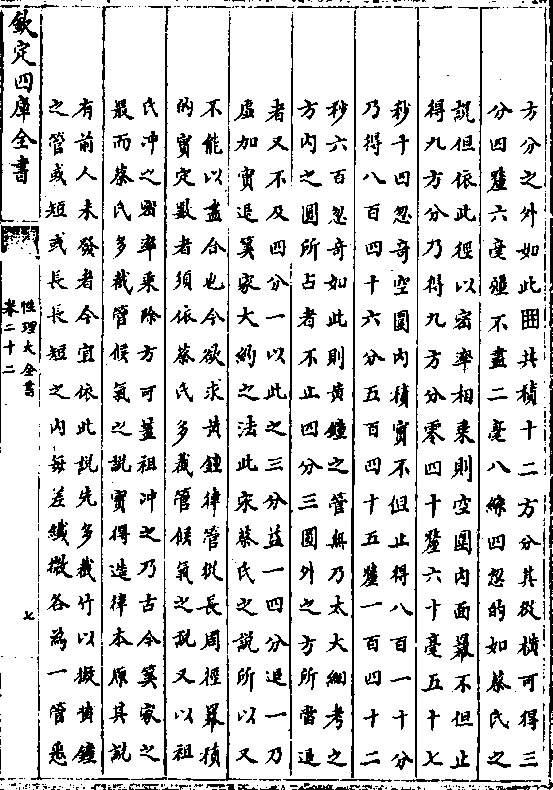 方分之外如此囲共積十二方分其從横可得三
分四釐六毫強不盡二毫八絲四忽的如蔡氏之
説但依此徑以宻率相乗則空圍内面羃不但止
得九方分乃得九方分零四十釐六十毫五十七
秒千四忽竒空圍内積實不但止得八百一十分
乃得八百四十六分五百四十五釐一百四十二
秒六百忽竒如此則黄鐘之管無乃太大細考之
方内之圓所占者不止四分三圓外之方所當退
者又不及四分一以此之三分益一四分退一乃
虚加實退算家大約之法此宋蔡氏之説所以又
不能以盡合也今欲求黄鐘律管從長周徑羃積
的實定數者須依蔡氏多截管候氣之説又以祖
氏冲之宻率乗除方可蓋祖冲之乃古今算家之
最而蔡氏多截管候氣之説實得造律本原其説
有前人未發者今宜依此説先多截竹以擬黄鐘
之管或短或長長短之内毎差纎微各為一管悉
欽定四庫全書
性理大全書
卷二十二
七